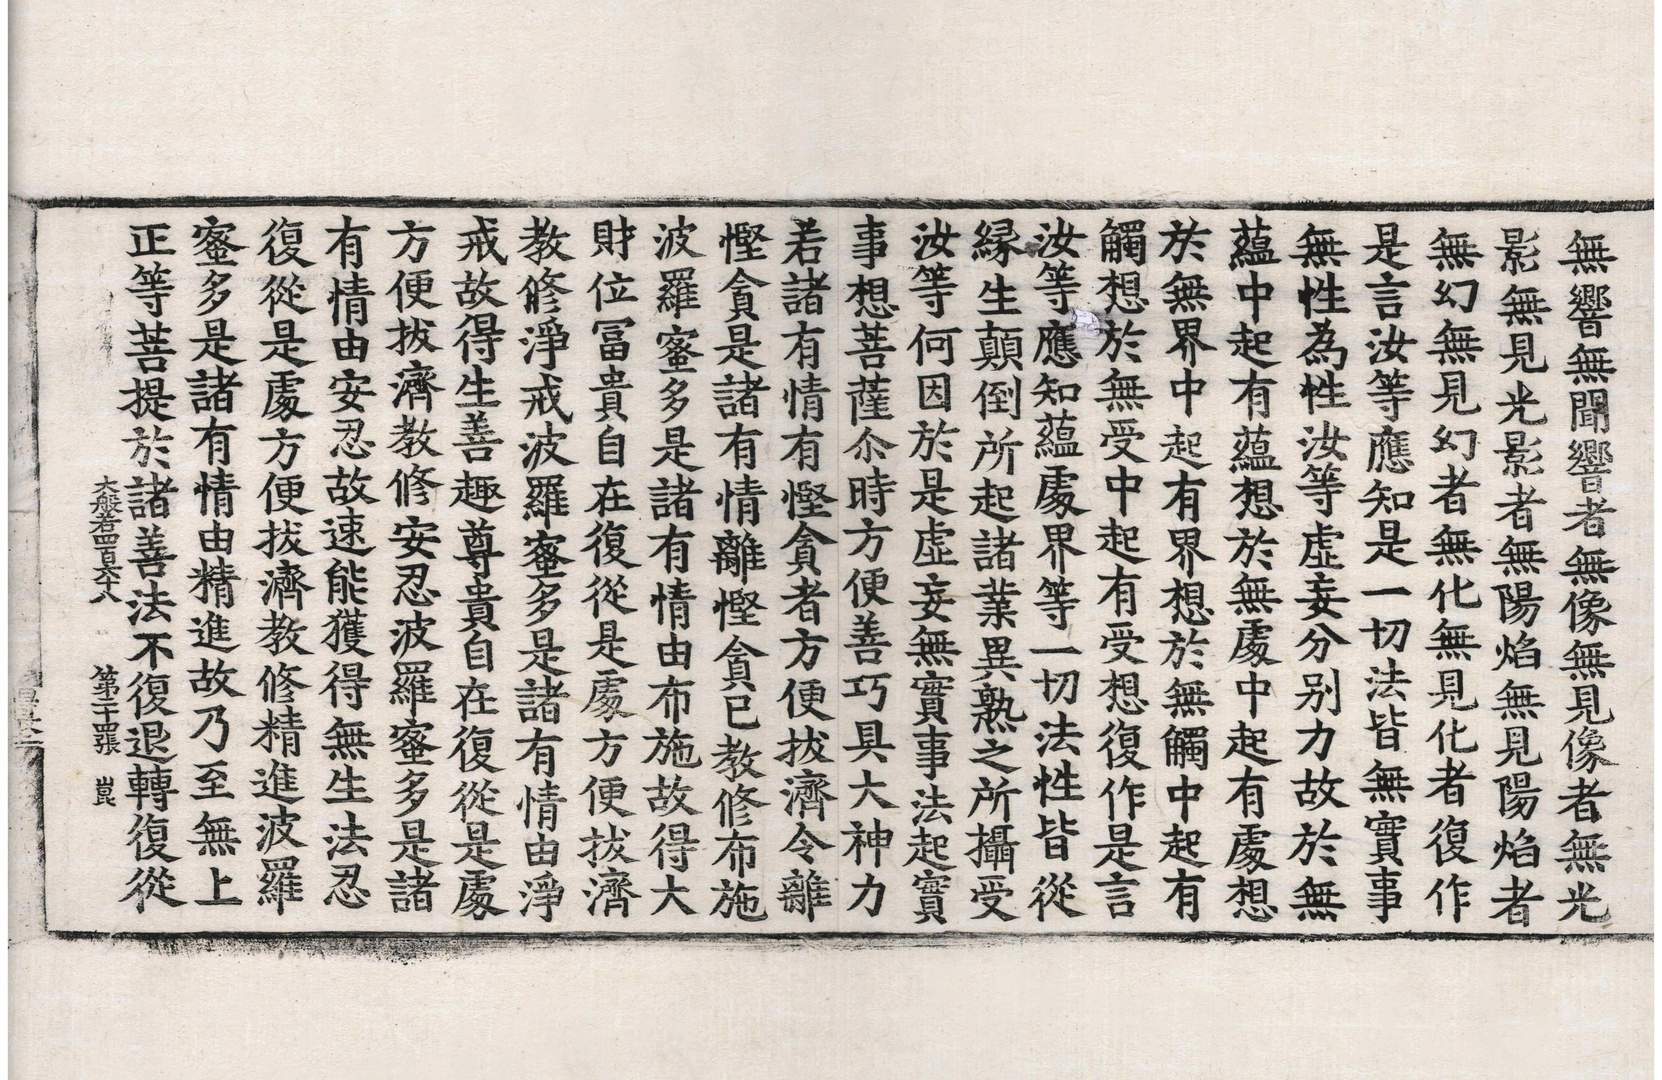 無響無聞響者無像無見像者無光
影無見光影者無陽焰無見陽焰者
無幻無見幻者無化無見化者復作
是言汝等應知是一切法皆無實事
無性為性汝等虛妄分別力故於無
蘊中起有蘊想於無處中起有處想
於無界中起有界想於無觸中起有
觸想於無受中起有受想復作是言
汝等應知蘊處界等一切法性皆從
緣生顛倒所起諸業異熟之所攝受
汝等何因於是虛妄無實事法起實
事想菩薩尒時方便善巧具大神力
若諸有情有慳貪者方便拔濟令離
慳貪是諸有情離慳貪已教修布施
波羅蜜多是諸有情由布施故得大
財位冨貴自在復從是處方便拔濟
教修淨戒波羅蜜多是諸有情由淨
戒故得生善趣尊貴自在復從是處
方便拔濟教修安忍波羅蜜多是諸
有情由安忍故速能獲得無生法忍
復從是處方便拔濟教修精進波羅
蜜多是諸有情由精進故乃至無上
正等菩提於諸善法不復退轉復從
大般若四百六十八 第二十四張 崑